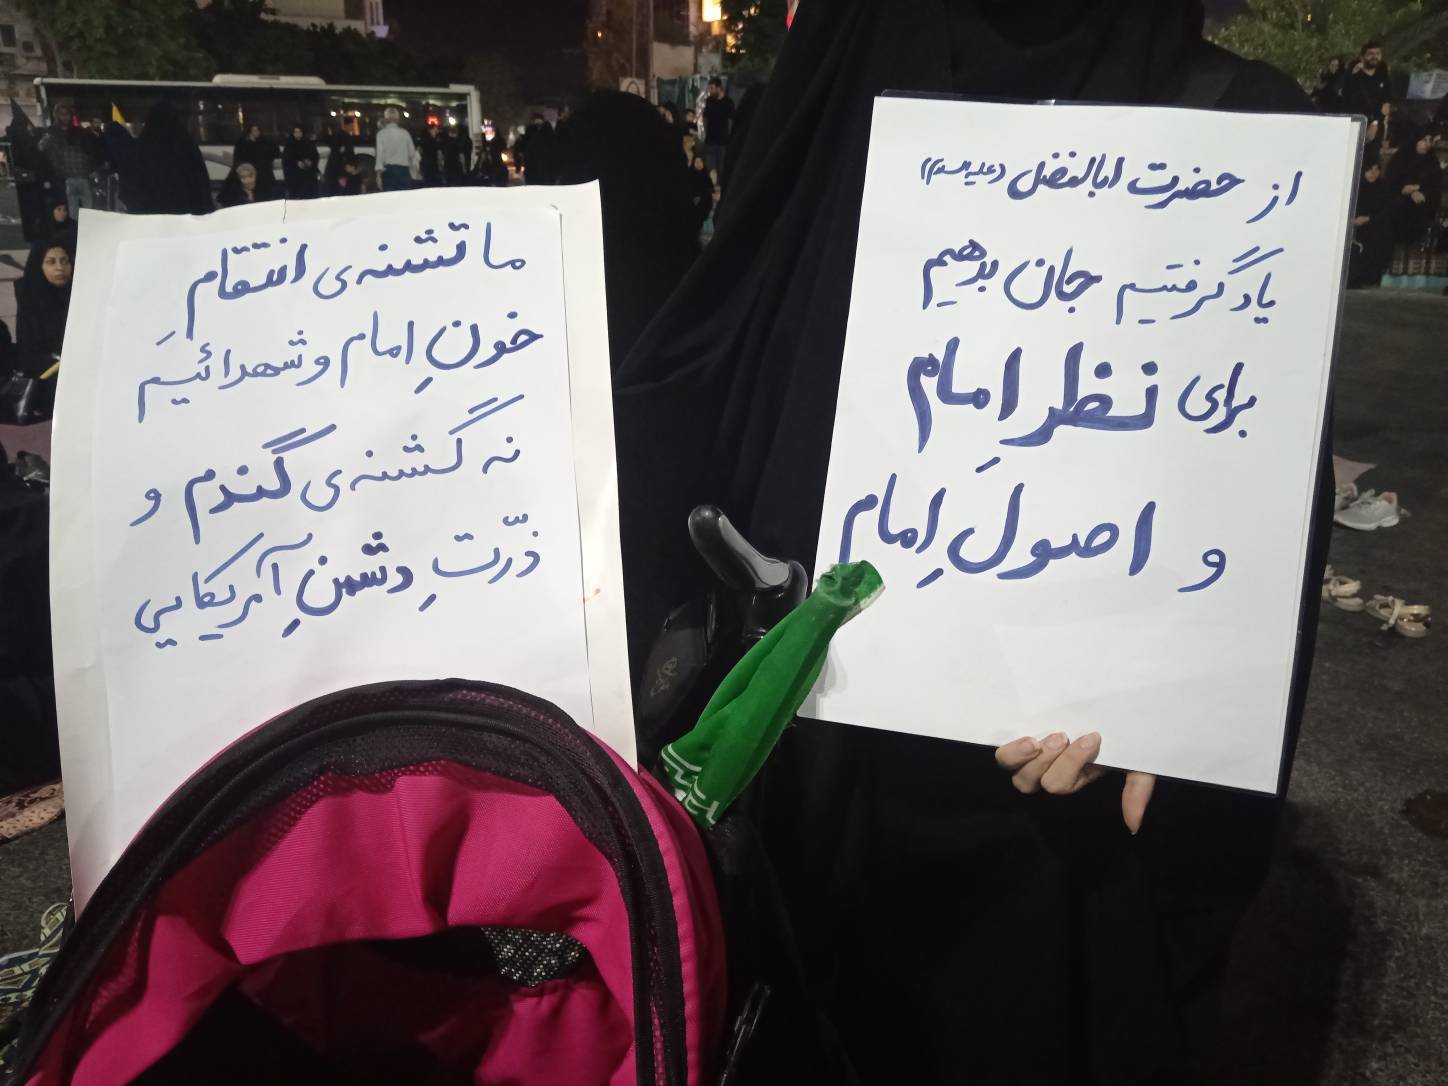 از حضرت اباالفضل (علیه‌السلام)
یاد گرفتیم جان بدهیم
برای نظرِ امام
و اصولِ امام
ما تشنه‌ی انتقامِ
خونِ امام و شهدائیم
نه گشنه‌ی گندم و
ذرّتِ دشمنِ آمریکایی